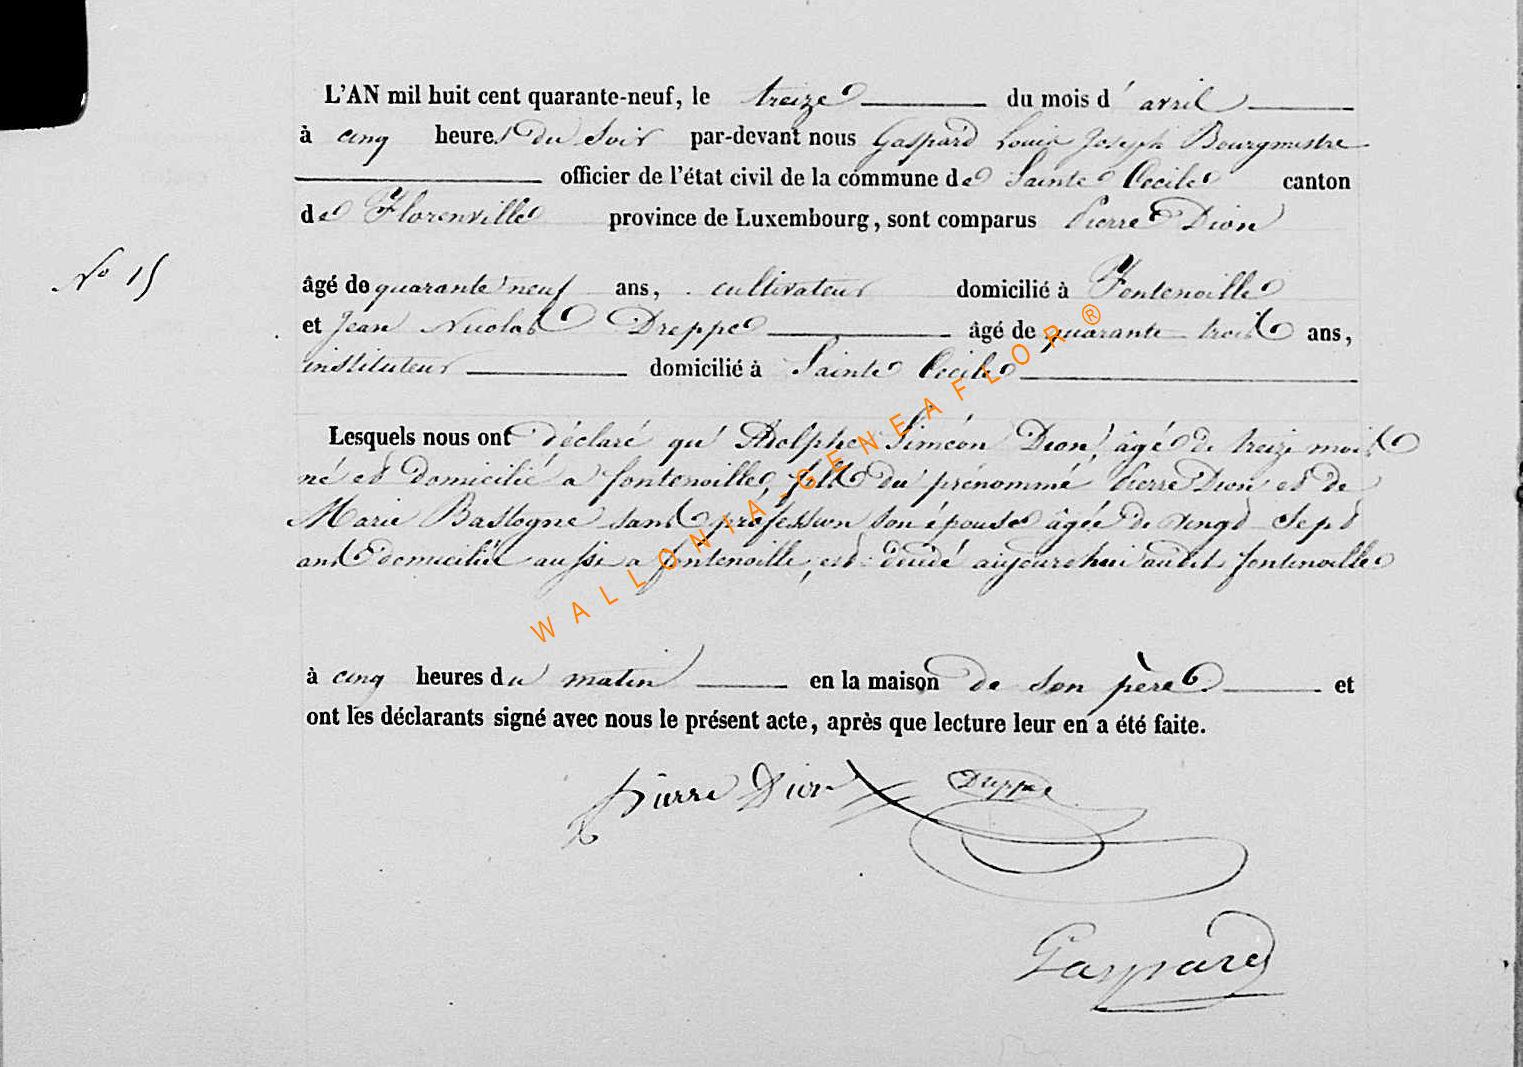 L'AN mil huit cent quarante-neuf, le treize du mois d'avril
à cinq heures du soir par-devant nous Gaspard Louis Joseph Bourgmestre
officier de l'état civil de la commune de Sainte Cecile canton
de Florenville province de Luxembourg, sont comparus Pierre Dion
N° 15
âgé de quarante neuf ans, cultivateur domicilié à Fontenoille
et Jean Nicolas Dreppe âgé de quarante trois ans,
instituteur domicilié à Sainte Cecile
Lesquels nous ont déclaré qu'Adolphe Siméon Dion, âgé de treize mois
né et domicilié a fontenoille, fils du prénommé Pierre Dion et de
Marie Bastogne sans profession son épouse âgée de vingt sept
ans domiciliée aussi a fontenoille, est décédé aujourdhui audit fontenoille
à cinq heures du matin en la maison de son père et
ont les déclarants signé avec nous le présent acte, après que lecture leur en a été faite.
Pierre Dion Dreppe
Gaspard
WALLONIA-GENEAFLOR ®